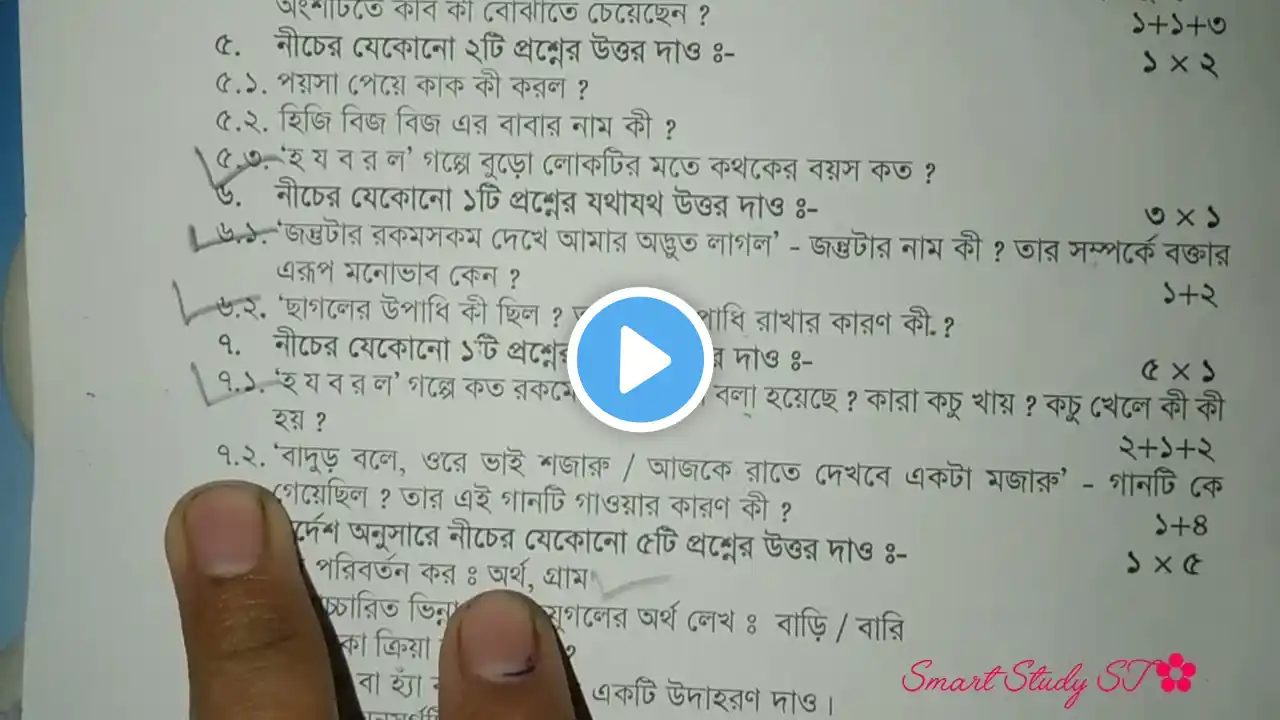 অংশটিতে কবি কী বোঝাতে চেয়েছেন ?
১+১+৩
৫. নীচের যেকোনো ২টি প্রশ্নের উত্তর দাও ঃ-
১ × ২
৫.১. পয়সা পেয়ে কাক কী করল ?
৫.২. হিজি বিজ বিজ এর বাবার নাম কী ?
৫.৩. ‘হ য ব র ল’ গল্পে বুড়ো লোকটির মতে কথকের বয়স কত ?
৬. নীচের যেকোনো ১টি প্রশ্নের যথাযথ উত্তর দাও ঃ-
৩ × ১
৬.১. ‘জন্তুটার রকমসকম দেখে আমার অদ্ভুত লাগল’ - জন্তুটার নাম কী ? তার সম্পর্কে বক্তার
এরূপ মনোভাব কেন ?
১+২
৬.২. ‘ছাগলের উপাধি কী ছিল ? রাখার কারণ কী. ?
৭. নীচের যেকোনো ১টি দাও ঃ-
৫ × ১
৭.১. ‘হ য ব র ল’ গল্পে কত বলা হয়েছে ? কারা কচু খায় ? কচু খেলে কী কী
হয় ?
২+১+২
৭.২. ‘বাদুড় বলে, ওরে ভাই শজারু / আজকে রাতে দেখবে একটা মজারু’ - গানটি কে
গেয়েছিল ? তার এই গানটি গাওয়ার কারণ কী ?
১+৪
অনুসারে নীচের যেকোনো ৫টি প্রশ্নের উত্তর দাও ঃ-
১ × ৫
পরিবর্তন কর ঃ অর্থ, গ্রাম
অর্থ লেখ ঃ বাড়ি / বারি
ক্রিয়া
বা হ্যাঁ একটি উদাহরণ দাও।
Smart Study ST